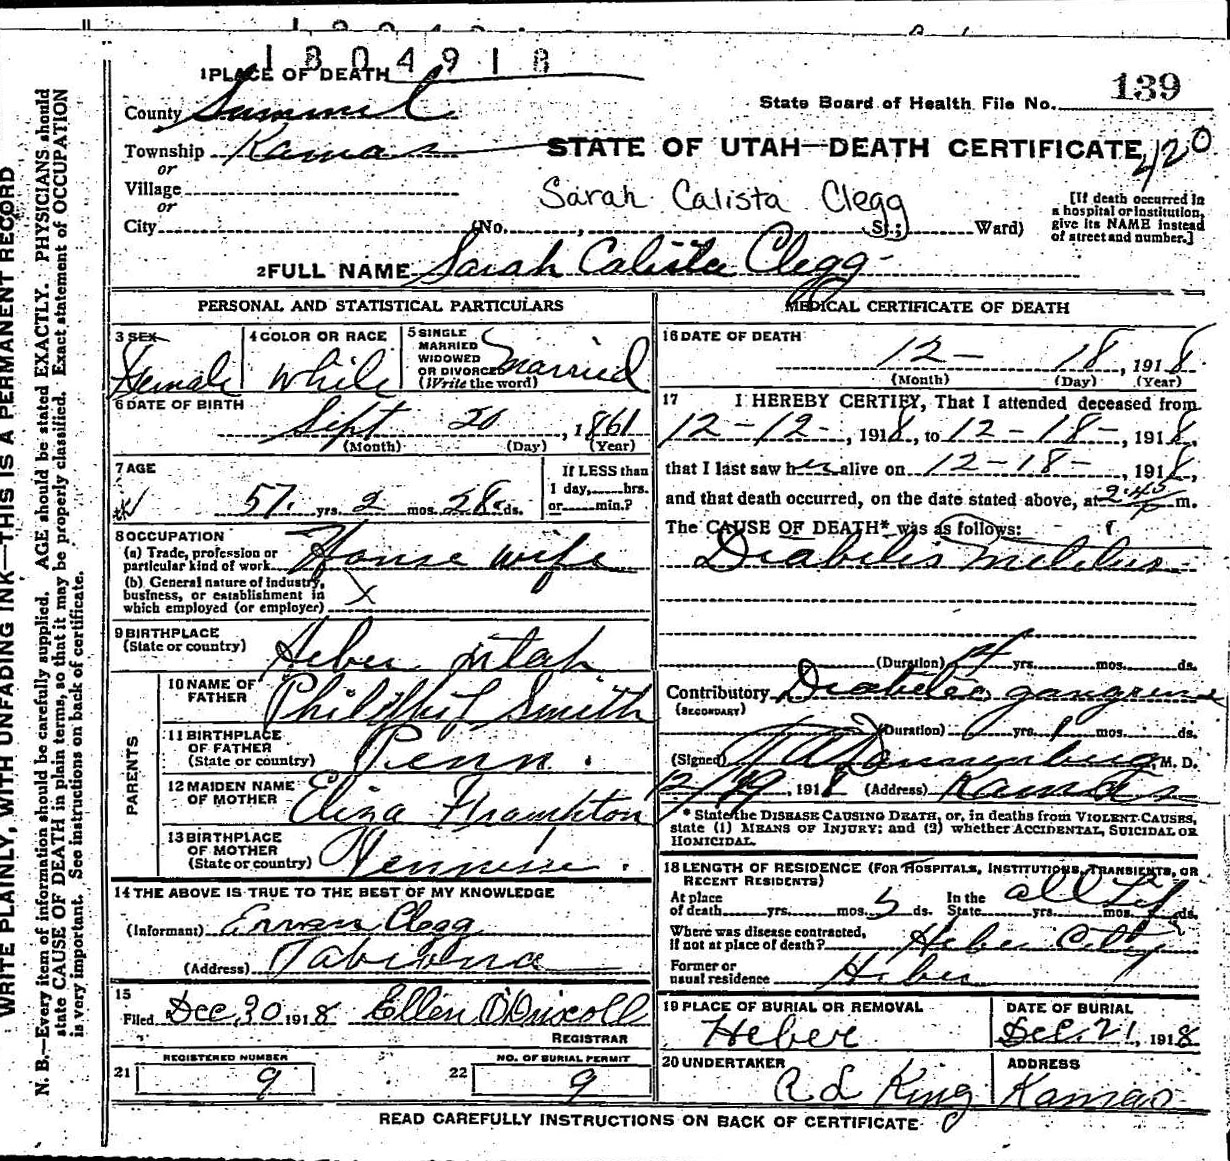 1804918
1 PLACE OF DEATH
139
State Board of Health File No.
County Summit
Township Kamas
STATE OF UTAH—DEATH CERTIFICATE 420
or
Village
or
Sarah Calista Clegg
City (No. , St.; Ward)
[If death occurred in
a hospital or institution,
give its NAME instead
of street and number.]
2 FULL NAME Sarah Calista Clegg
PERSONAL AND STATISTICAL PARTICULARS
3 SEX
Female
4 COLOR OR RACE
White
5 SINGLE
MARRIED
WIDOWED
OR DIVORCED
(Write the word)
Married
6 DATE OF BIRTH
Sept 20, 1861
(Month) (Day) (Year)
7 AGE
57 yrs. 2 mos. 28 ds.
If LESS than
1 day, hrs.
or min.?
8 OCCUPATION
(a) Trade, profession or
particular kind of work House wife
(b) General nature of industry,
business, or establishment in
which employed (or employer) X
9 BIRTHPLACE
(State or country) Heber Utah
PARENTS
10 NAME OF
FATHER Smith
11 BIRTHPLACE
OF FATHER
(State or country) Penn.
12 MAIDEN NAME
OF MOTHER Eliza Frampton
13 BIRTHPLACE
OF MOTHER
(State or country)
14 THE ABOVE IS TRUE TO THE BEST OF MY KNOWLEDGE
(Informant) Clegg
(Address) Tabiona
15
Filed Dec, 30 1918 Ellen O'Driscoll
REGISTRAR
REGISTERED NUMBER
21 9
NO. OF BURIAL PERMIT
22 9
MEDICAL CERTIFICATE OF DEATH
16 DATE OF DEATH
12 – 18, 1918
(Month) (Day) (Year)
17 I HEREBY CERTIFY, That I attended deceased from
12 – 12 –, 1918, to 12 – 18 –, 1918,
that I last saw her alive on 12 – 18 –, 1918,
and that death occurred, on the date stated above, at 2:45 P m.
The CAUSE OF DEATH* was as follows:
Diabetis Melitus
(Duration) yrs. mos. ds.
Contributory Diabetes gangrene
(SECONDARY)
(Duration) yrs. 1 mos. ds.
(Signed) M. D.
12/19, 1918 (Address) Kamas
* State the DISEASE CAUSING DEATH, or, in deaths from VIOLENT CAUSES,
state (1) MEANS OF INJURY; and (2) whether ACCIDENTAL, SUICIDAL OR
HOMICIDAL.
18 LENGTH OF RESIDENCE (FOR HOSPITALS, INSTITUTIONS, TRANSIENTS, OR
RECENT RESIDENTS)
At place
of death yrs. mos. 5 ds. In the
State yrs. mos. ds. all Life
Where was disease contracted,
if not at place of death? Heber City
Former or
usual residence Heber
19 PLACE OF BURIAL OR REMOVAL
Heber
DATE OF BURIAL
Dec. 21, 1918
20 UNDERTAKER
R L King
ADDRESS
Kamas
READ CAREFULLY INSTRUCTIONS ON BACK OF CERTIFICATE
WRITE PLAINLY, WITH UNFADING INK—THIS IS A PERMANENT RECORD
N. B.—Every item of information should be carefully supplied. AGE should be stated EXACTLY. PHYSICIANS should
state CAUSE OF DEATH in plain terms, so that it may be properly classified. Exact statement of OCCUPATION
is very important. See instructions on back of certificate.